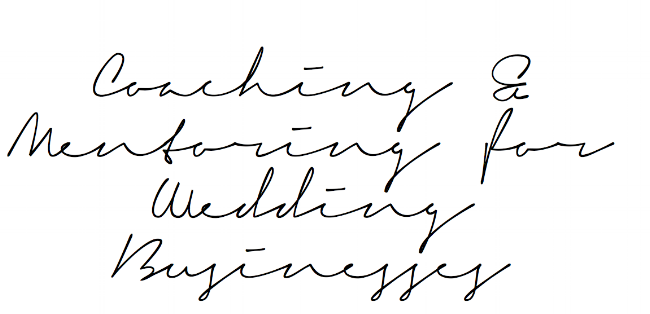 Coaching &
Mentoring for
Wedding
Businesses